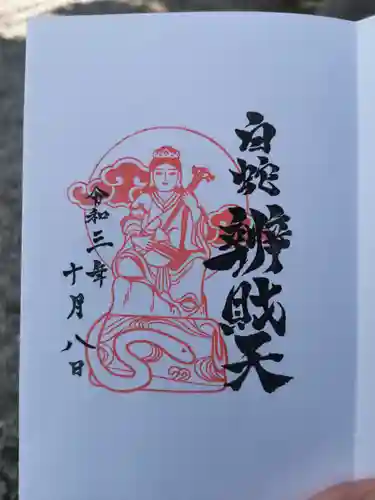 白蛇
辨財天
令和三年
十月八日